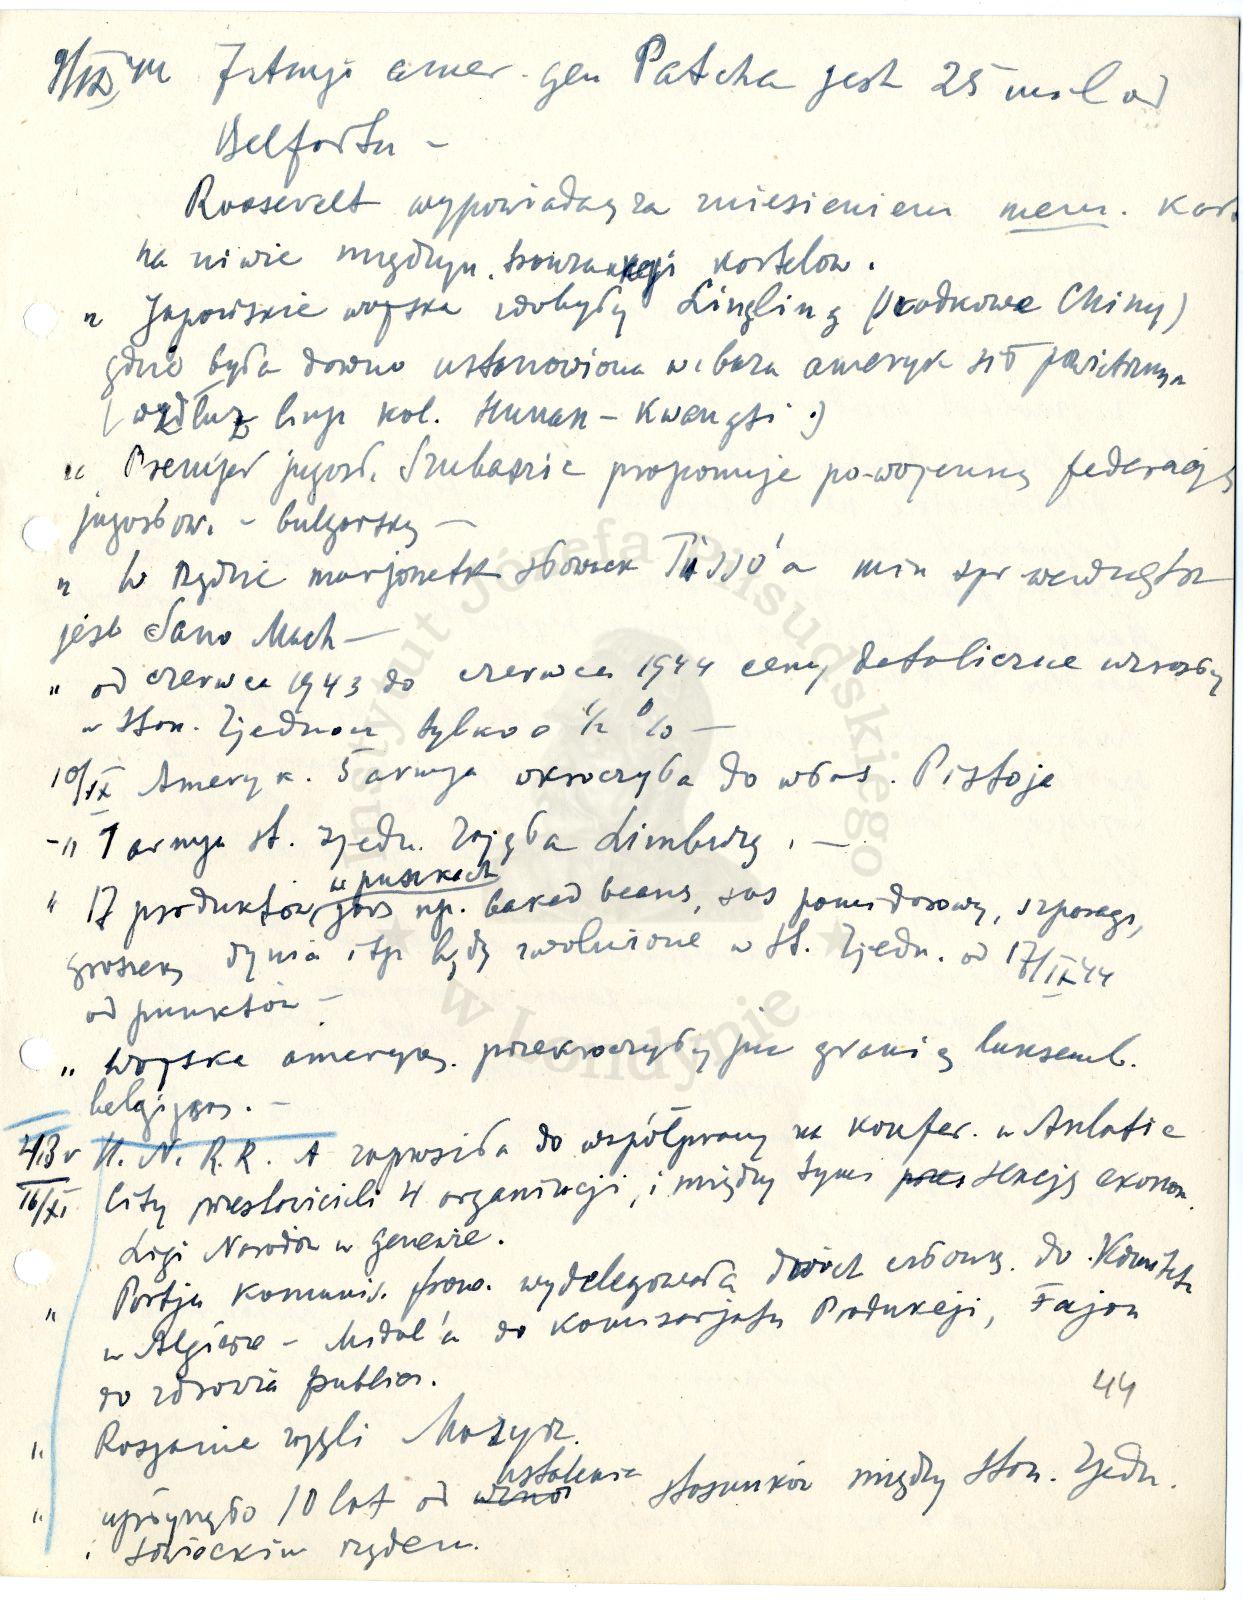 9/IX 44 7 Armji amer. gen Patcha jest 25 mil od
Belfortu –
Roosevelt wypowiada za zniesieniem
na niwie kartelow.
" Japońskie wojska zdobyły Lingling (środkowe Chiny)
gdzie była dawno ustanowiona baza ameryk sił powietrznyn
(wzdłuż linji kol. Hunan – Kwangsi.)
" Premjer jugosł. Szubaszic proponuje po-wojenną federację
jugosłow. – bulgarską –
" W rządzie marjonetk słowack Tisso'a min spr wewnętrz
jest Sano Mach –
" od czerwca 1943 do czerwca 1944 ceny detaliczne wzrosły
w Stan. Zjednocz tylko o 1/2 % –
10/IX Ameryk. 5 armja wkroczyła do włas. Pistoja
–" 1 armja St. Zjedn. zajęła Limburg. –
" 17 produktów w puszkach jaro np. baked beans, sos pomidorowy, szparagi,
groszek, dynia itp będą zwolnione w St. Zjedn. od 17/IX 44
od punktów –
" wojska amerykąs. przekroczyły już granicę luksemb.
belgijsą. –
43 r U. N. R. R. A zaprosiła do współpracy na konfer. w Atlatic
16/XI City przestawicieli 4 organizacji, i między tymi sekcję ekonom.
Ligi Narodów w Genewie.
" Partja Komunis. franc. wydelegowała dwóch członk. do Komitetu
w Algierze – Midol'a do komisarjatu Produkcji, Fajon
do zdrowia public.
44
" Rosjanie zajęli Mozyrz.
" upłynęło 10 lat od ustalenia stosunków między Stan. Zjedn.
i sowieckim rządem.
Instytut Józefa Piłsudskiego
w Londynie